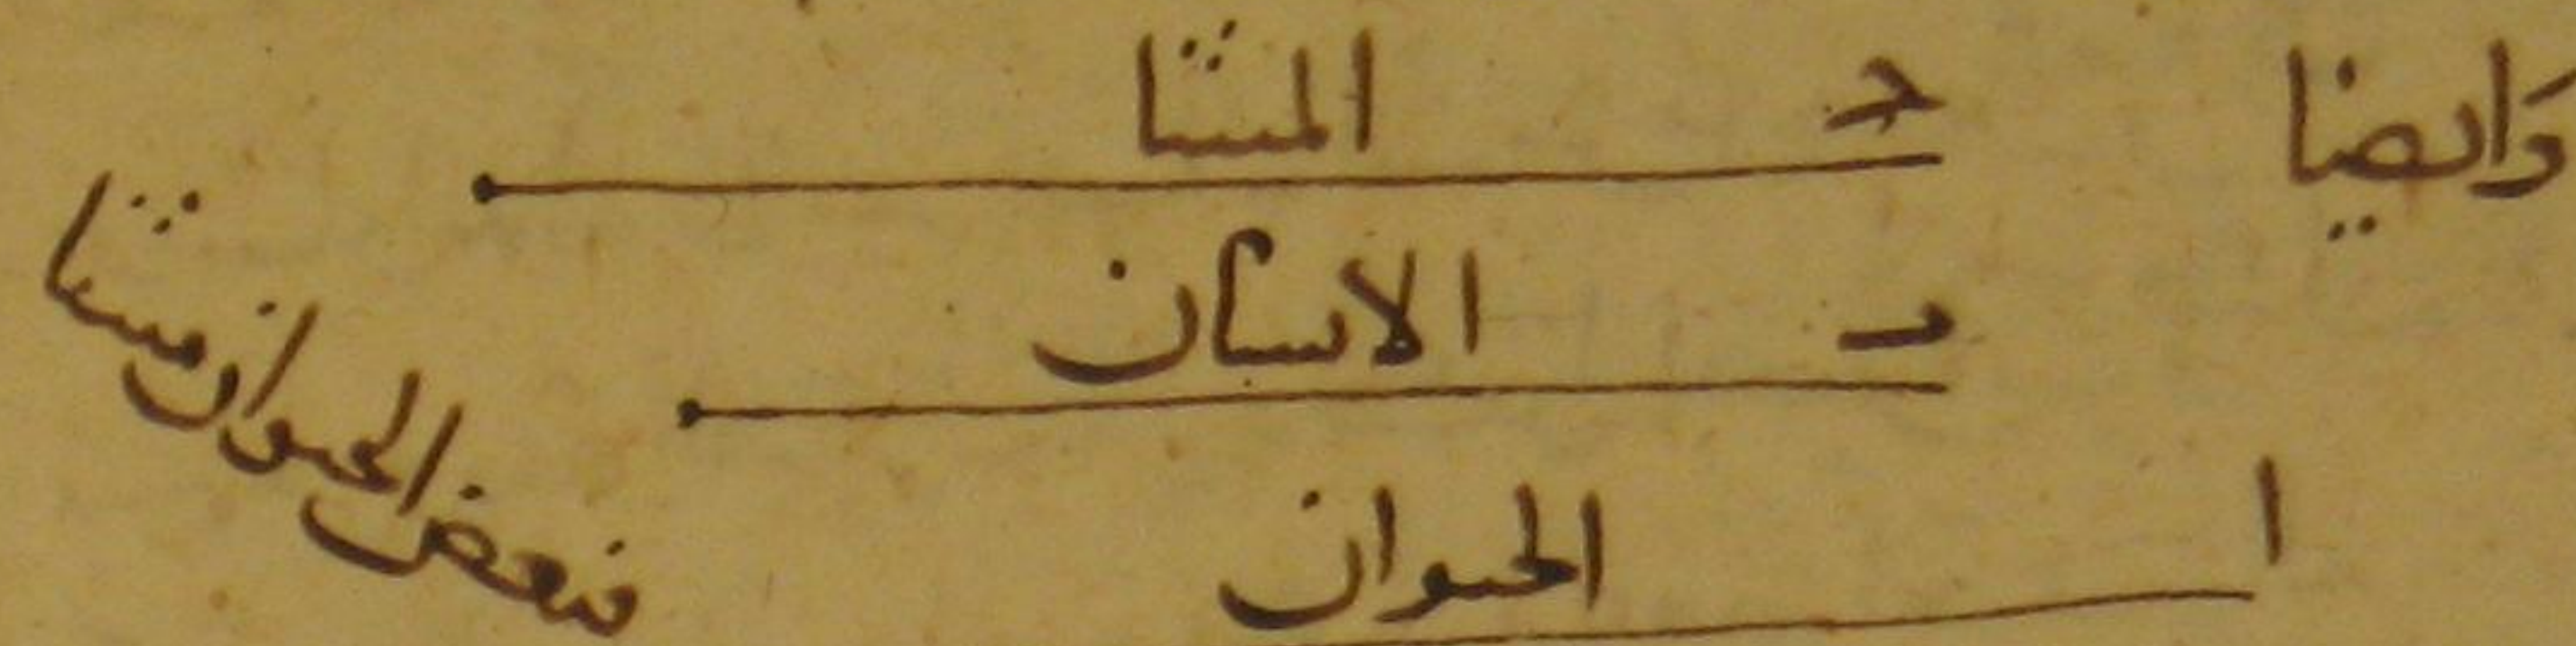 وَايضا
ج المشا
الانسان
ا الحيوان
فبعض الحيوان مشا